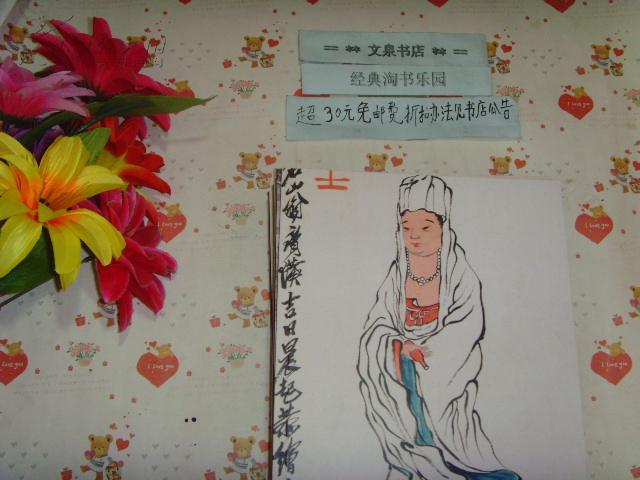 = ** 文泉书店 ** =
经典淘书乐园
超30元免邮费,折扣办法见书店公告
士
山翁齊璜吉日晨起恭繪
I love you
I love you
I love you
I love you
I love you